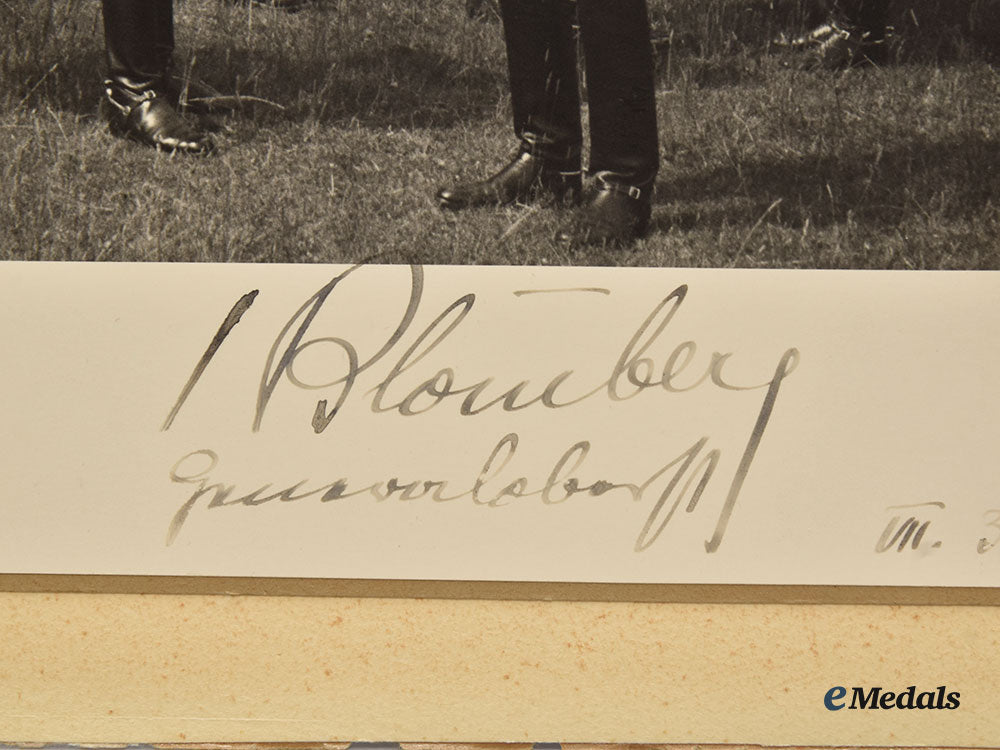 v Blomberg
Generaloberst
VII. 3
eMedals